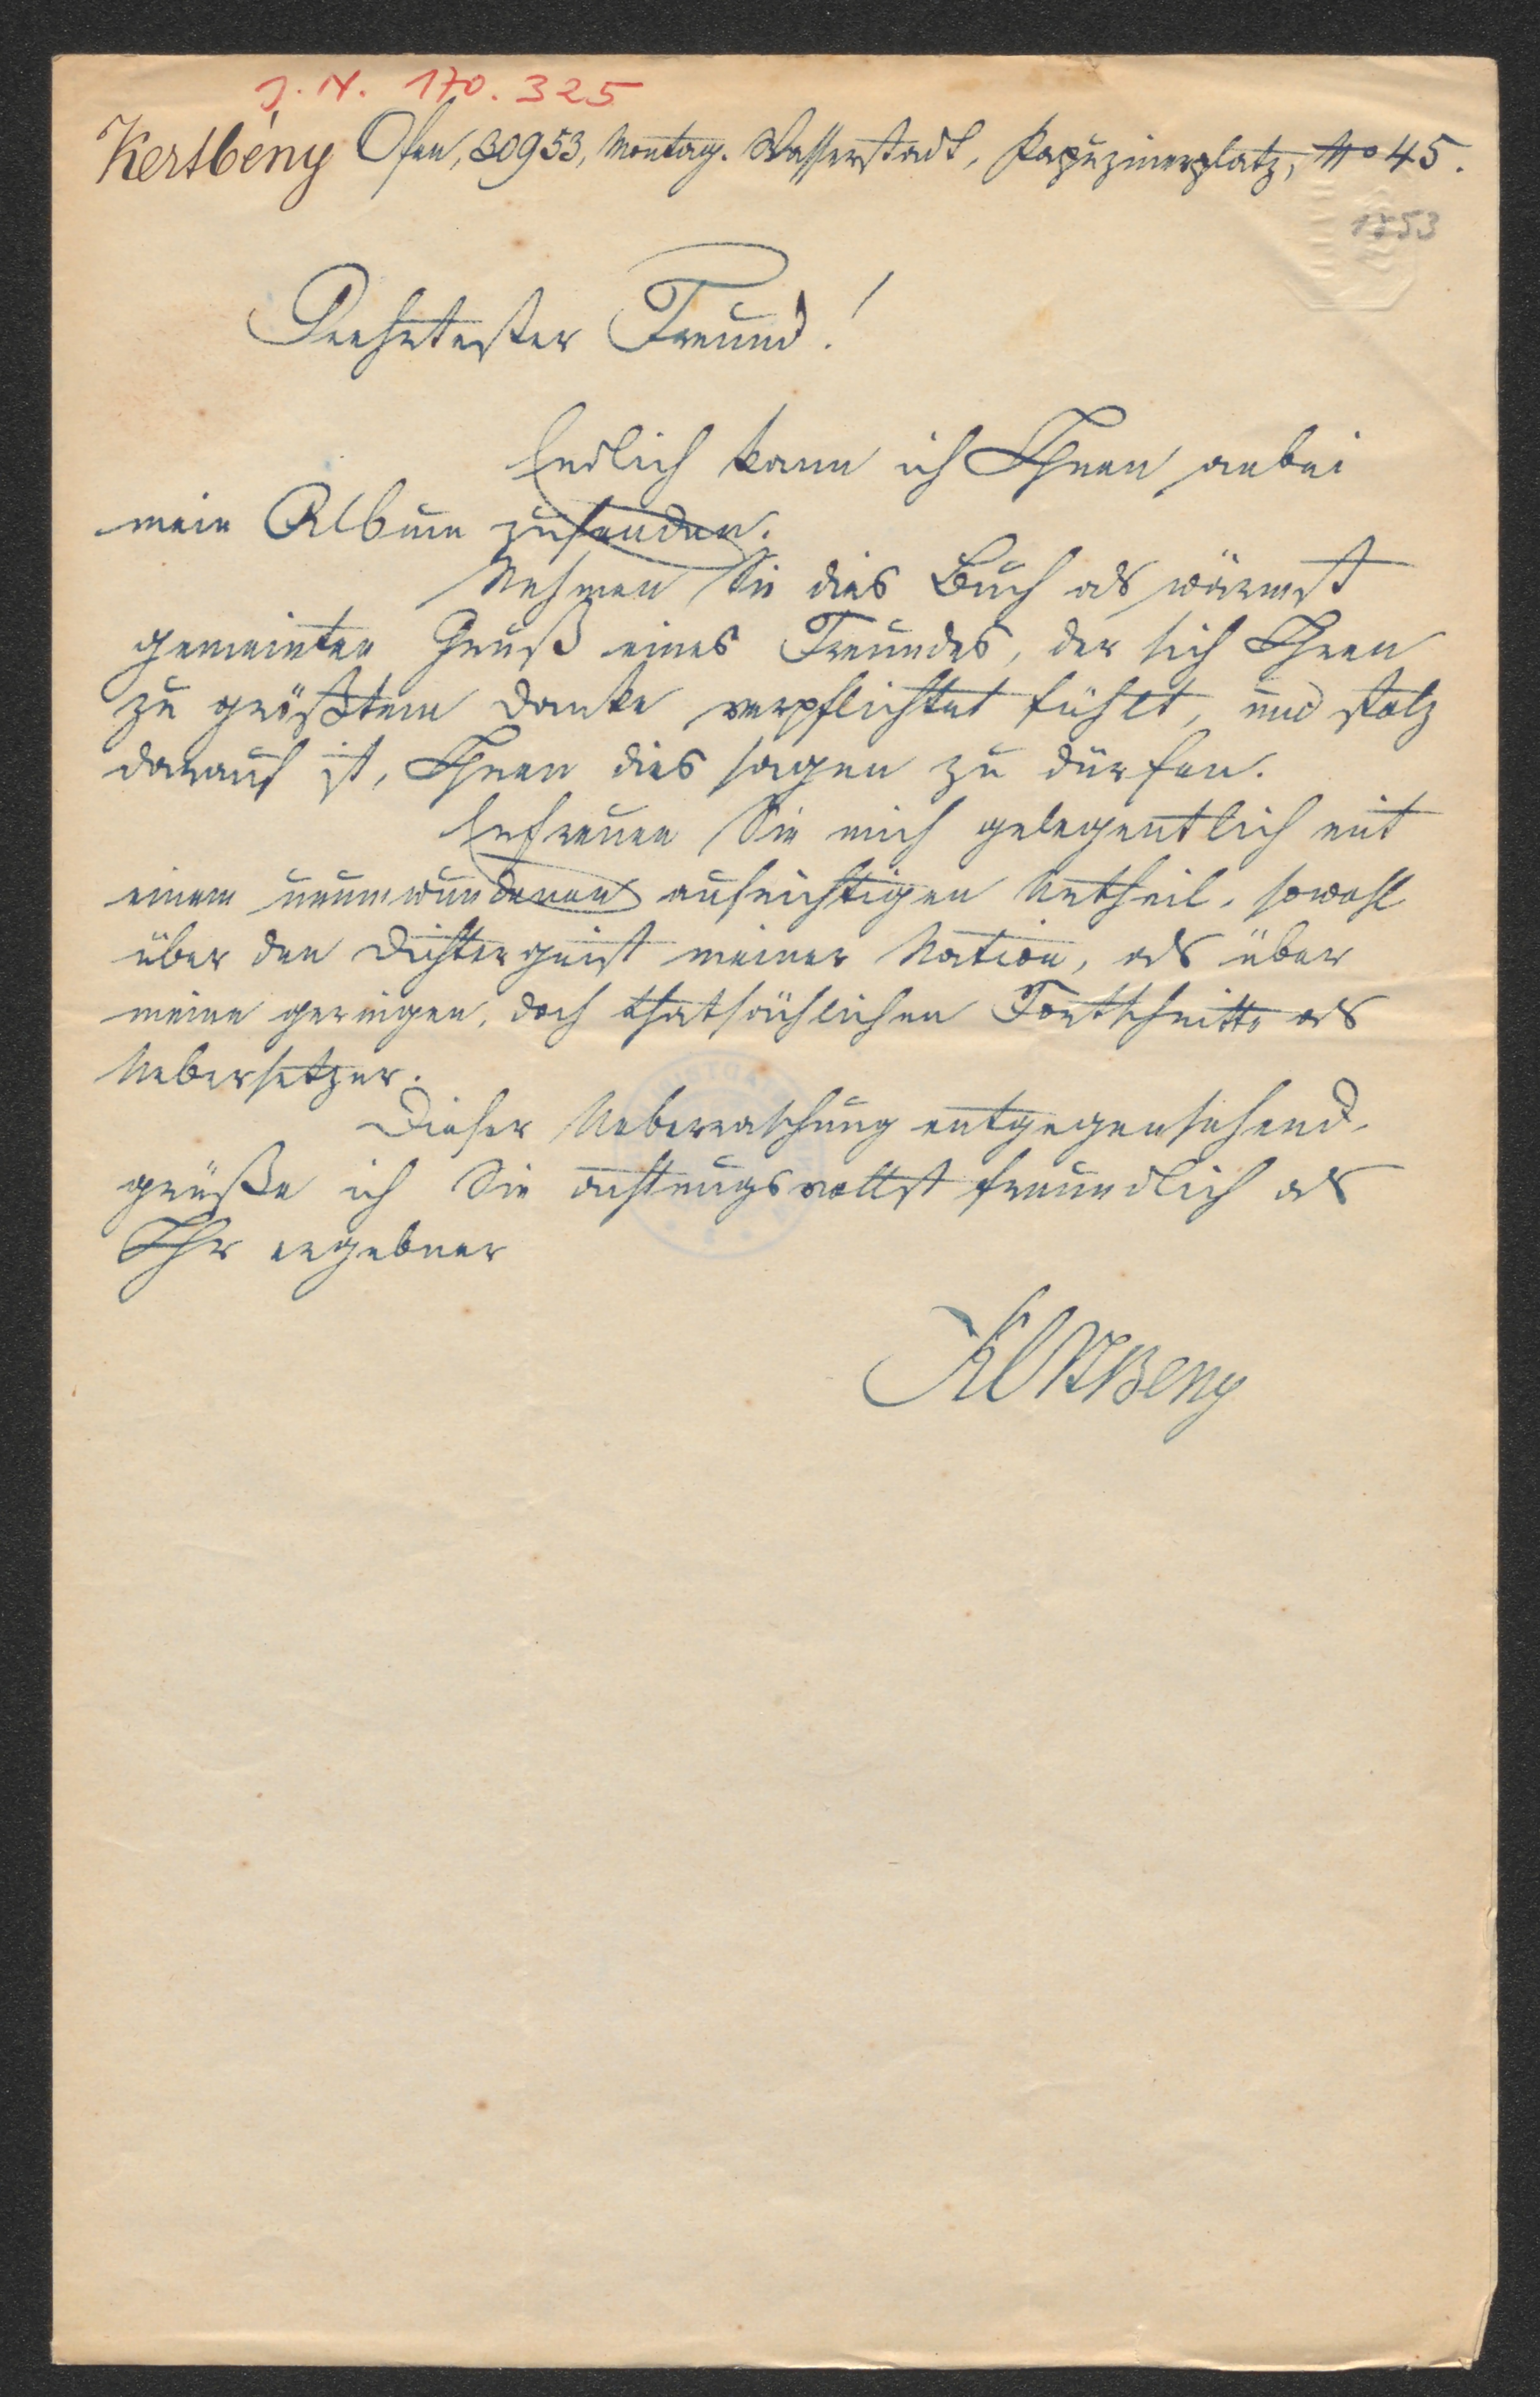 J. N. 170.325
Kertbény Ofen, 30953, Montag. Wasserstadt, Kapuzinerplatz, No 45.
1853
Geehrtester Freund!
Endlich kann ich Ihnen anbei
mein Album zusenden.
Nehmen Sie dies Buch als wärmst
gemeinten Gruß eines Freundes, der sich Ihnen
zu größtem Danke verpflichtet fühlt, und stolz
darauf ist, Ihnen dies sagen zu dürfen.
Erfreuen Sie mich gelegentlich mit
einem unumwundenen aufrichtigen Urtheil, sowohl
über den Dichtergeist meiner Nation, als über
meine geringen, doch thatsächlichen Fortschritte als
Uebersetzer.
Dieser Ueberraschung entgegensehend,
grüße ich Sie achtungsvollst freundlich als
Ihr ergebner
Kertbeny